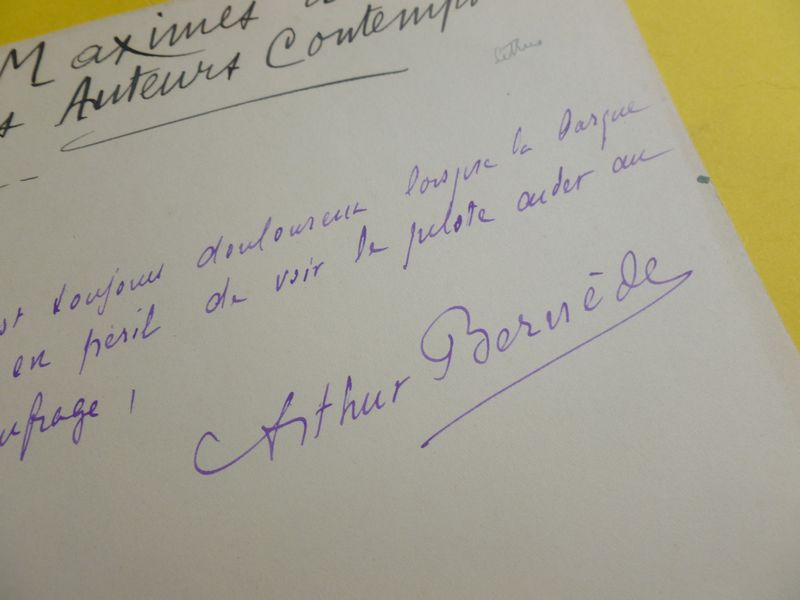 Maximes
Auteurs Contemp
lettres
st toujours douloureux lorsque la barque
en péril de voir le pilote aider au
ufrage !
Arthur Bernède